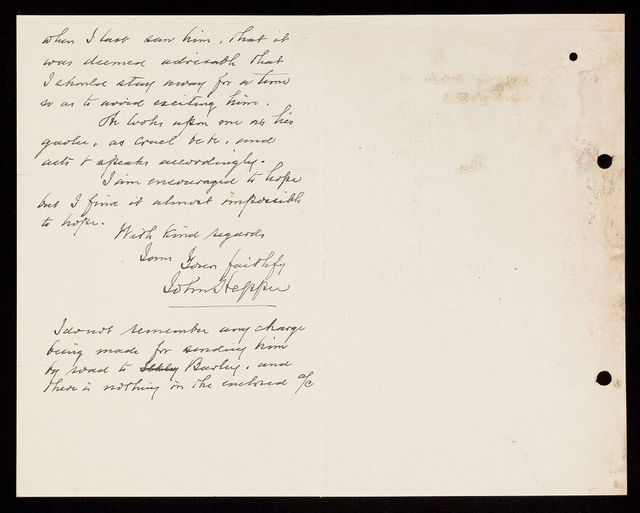 when I last saw him, that it
was deemed advisable that
I should stay away for a time
so as to avoid exciting him.
He looks upon me as his
gaoler, as cruel &c &c, and
acts & speaks accordingly.
I am encouraged to hope
but I find it almost impossible
to hope.
With kind regards
I am Yours faithfy
John Hepper
I do not remember any charge
being made for sending him
by road to Burley, and
there is nothing in the enclosed a/c